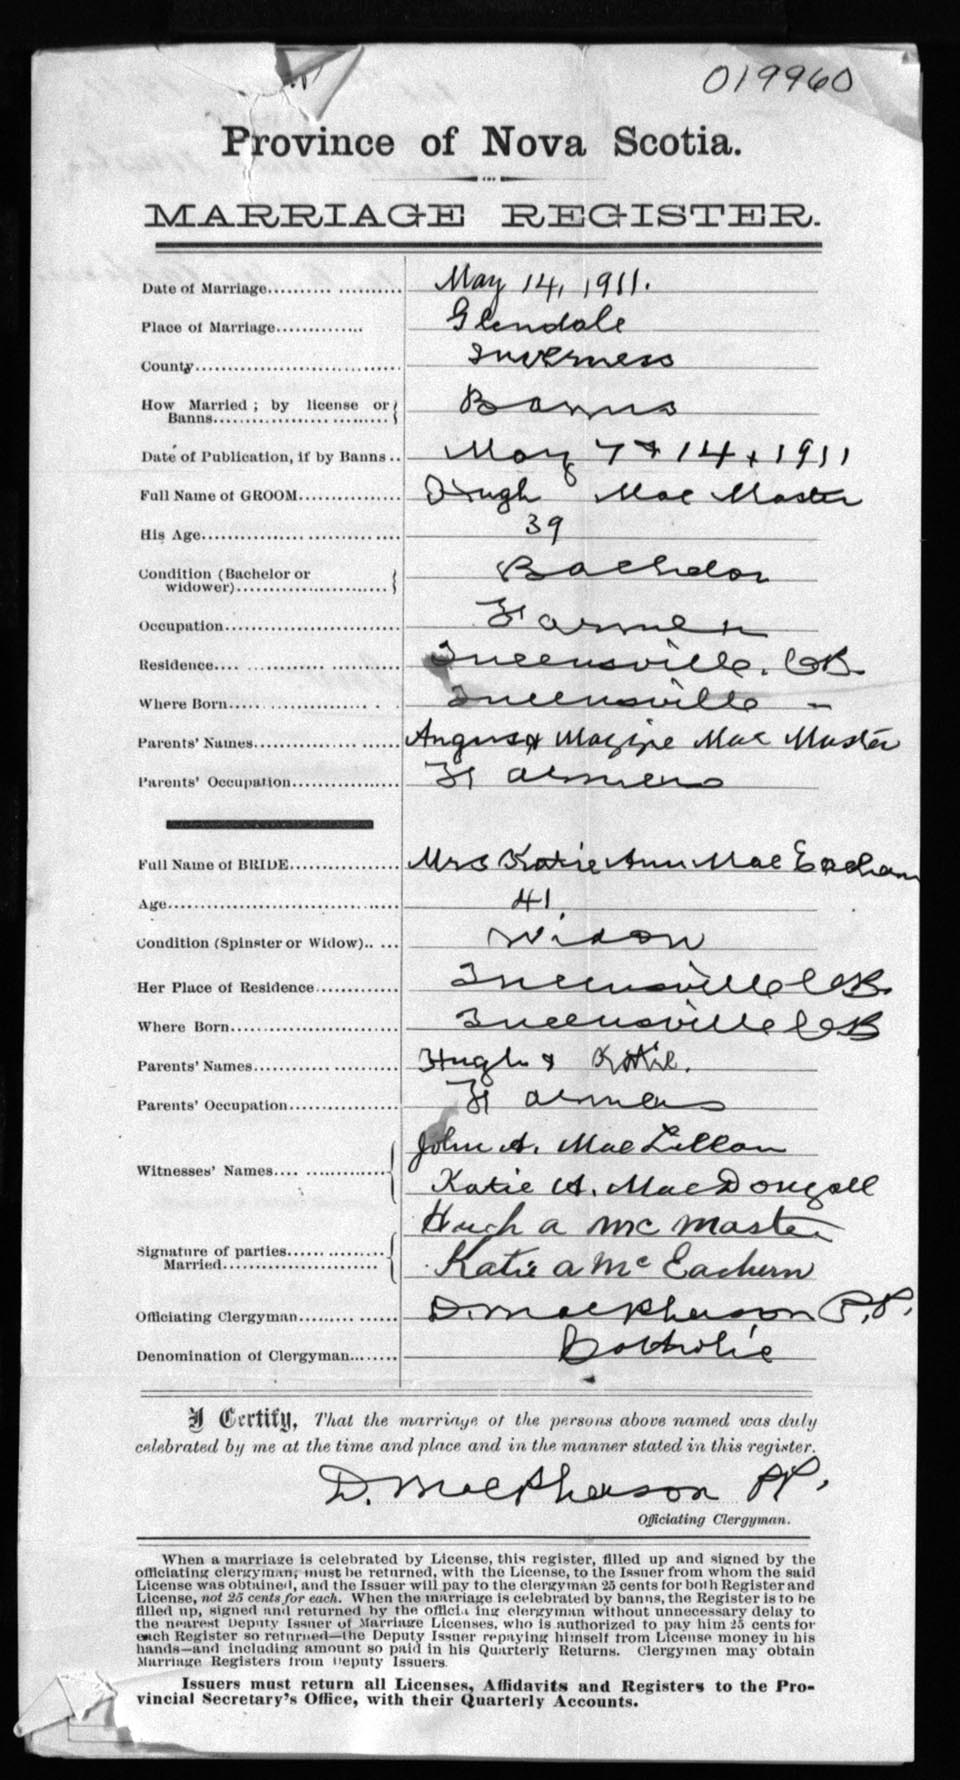 019960
Province of Nova Scotia.
MARRIAGE REGISTER.
Date of Marriage.................... May 14, 1911.
Place of Marriage............. Glendale
County............................... Inverness
How Married ; by license or
Banns.............................. Banns
Date of Publication, if by Banns .. May 7 & 14, 1911
Full Name of GROOM............... Hugh Mac Master
His Age.............................. 39
Condition (Bachelor or
widower)....................... Bachelor
Occupation.......................... Farmer
Residence.... ........... .......... Queensville, CB.
Where Born...................... . . Queensville –
Parents' Names...................... Angus & Mac Master
Parents' Occupation................. Farmers
Full Name of BRIDE................ Mrs Katie Ann Mac Eachern
Age................................... 41
Condition (Spinster or Widow).. ... Widow
Her Place of Residence............. Queensville CB.
Where Born......................... Queensville CB
Parents' Names...................... Hugh & Katie.
Parents' Occupation................. Farmers
John A. MacLellan
Witnesses' Names.... ..............
Katie A. MacDougall
Hugh a Mc Master
Signature of parties..................
Married........................ Katie a Mc Eachern
Officiating Clergyman......... ..... D. MacPherson P.P.
Denomination of Clergyman........ Catholic
I Certify, That the marriage of the persons above named was duly
celebrated by me at the time and place and in the manner stated in this register.
D. MacPherson PP.
Officiating Clergyman.
When a marriage is celebrated by License, this register, filled up and signed by the
officiating clergyman, must be returned, with the License, to the Issuer from whom the said
License was obtained, and the Issuer will pay to the clergyman 25 cents for both Register and
License, not 25 cents for each. When the marriage is celebrated by banns, the Register is to be
filled up, signed and returned by the officiating clergyman without unnecessary delay to
the nearest Deputy Issuer of Marriage Licenses, who is authorized to pay him 25 cents for
each Register so returned—the Deputy Issuer repaying himself from License money in his
hands—and including amount so paid in his Quarterly Returns. Clergymen may obtain
Marriage Registers from Deputy Issuers.
Issuers must return all Licenses, Affidavits and Registers to the Pro-
vincial Secretary's Office, with their Quarterly Accounts.